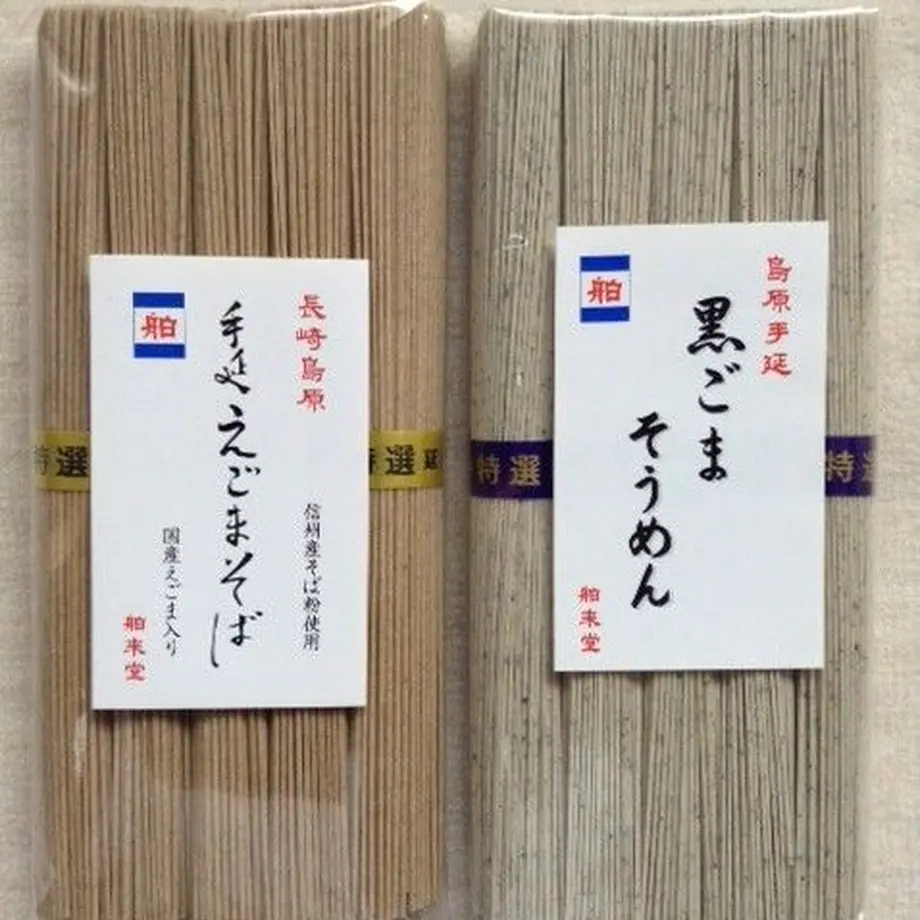 長崎島原
手延えごまそば
信州産そば粉使用
国産えごま入り
舶
舶来堂
特選
特選 延
島原手延
黒ごま
そうめん
舶
舶来堂
特選
特選